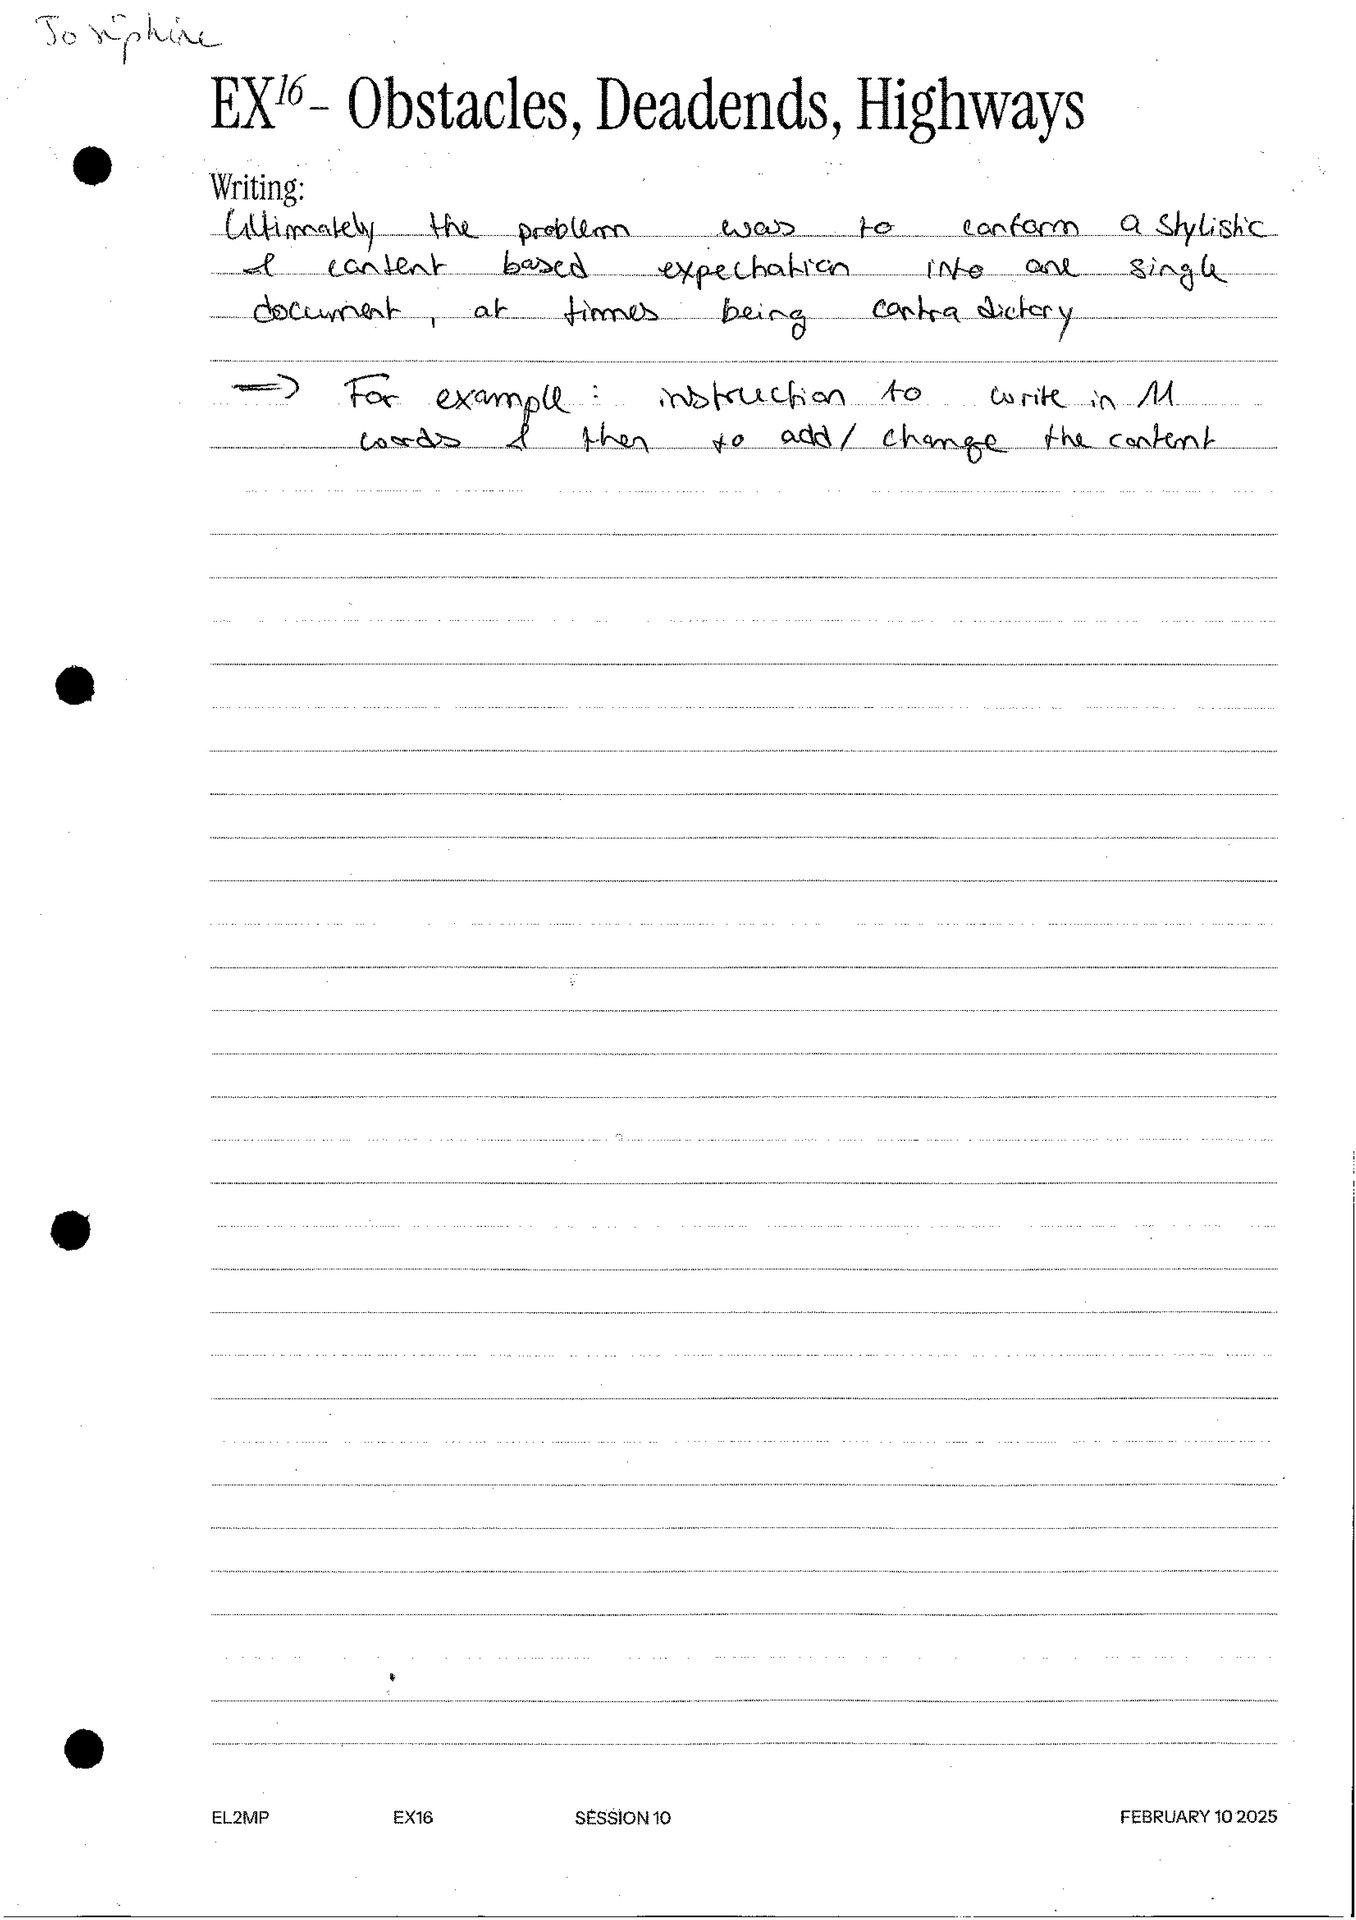 Josephine
EX16 – Obstacles, Deadends, Highways
Writing:
Ultimately the problem was to conform a stylistic
& content based expectation into one single
document, at times being contradictory
=> For example: instruction to write in 11
words & then to add/ change the content
EL2MP EX16 SESSION 10 FEBRUARY 10 2025